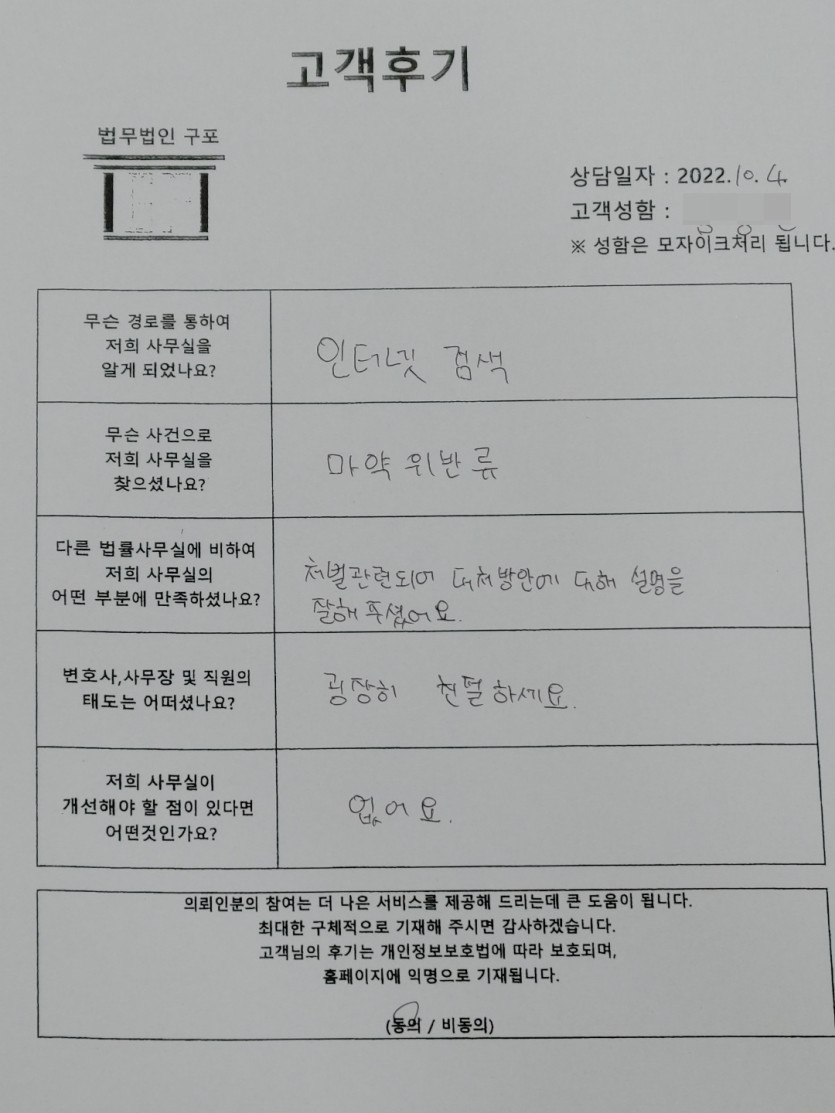 고객후기
법무법인 구포
상담일자 : 2022.10.4.
고객성함 :
※ 성함은 모자이크처리 됩니다.
무슨 경로를 통하여
저희 사무실을
알게 되었나요?
인터넷 검색
무슨 사건으로
저희 사무실을
찾으셨나요?
마약 위반류
다른 법률사무실에 비하여
저희 사무실의
어떤 부분에 만족하셨나요?
처벌관련되어 대처방안에 대해 설명을
잘해주셨어요.
변호사,사무장 및 직원의
태도는 어떠셨나요?
굉장히 친절하세요.
저희 사무실이
개선해야 할 점이 있다면
어떤것인가요?
없어요.
의뢰인분의 참여는 더 나은 서비스를 제공해 드리는데 큰 도움이 됩니다.
최대한 구체적으로 기재해 주시면 감사하겠습니다.
고객님의 후기는 개인정보보호법에 따라 보호되며,
홈페이지에 익명으로 기재됩니다.
(동의 / 비동의)